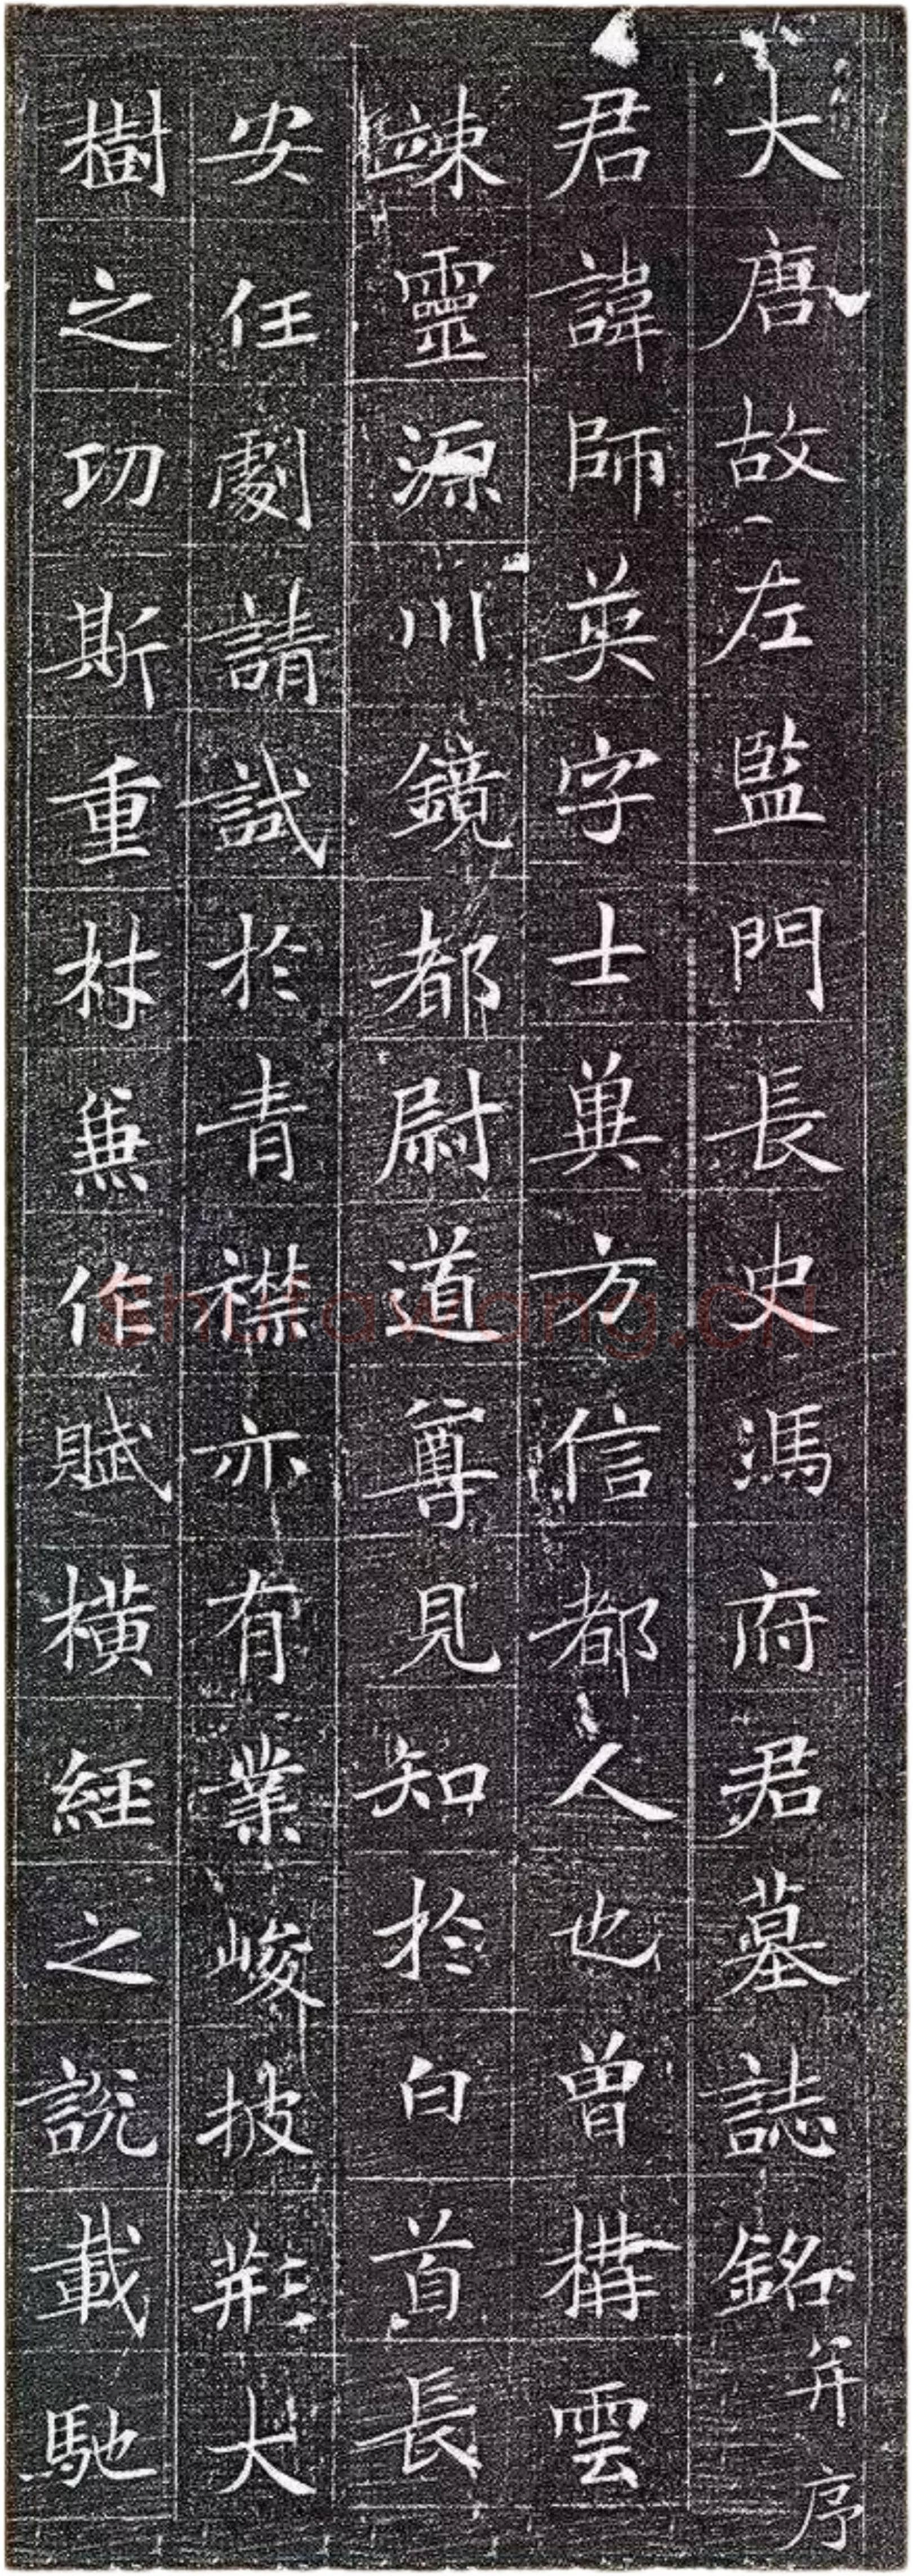 大唐故左監門長史馮府君墓誌銘并序
君諱師英字士兾方信都人也曾構雲
竦靈源川鏡都尉道尊見知於白首長
安任劇請試於青襟亦有業峻披形大
樹之功斯重材兼作賦橫經之說載馳
shufawang.CN